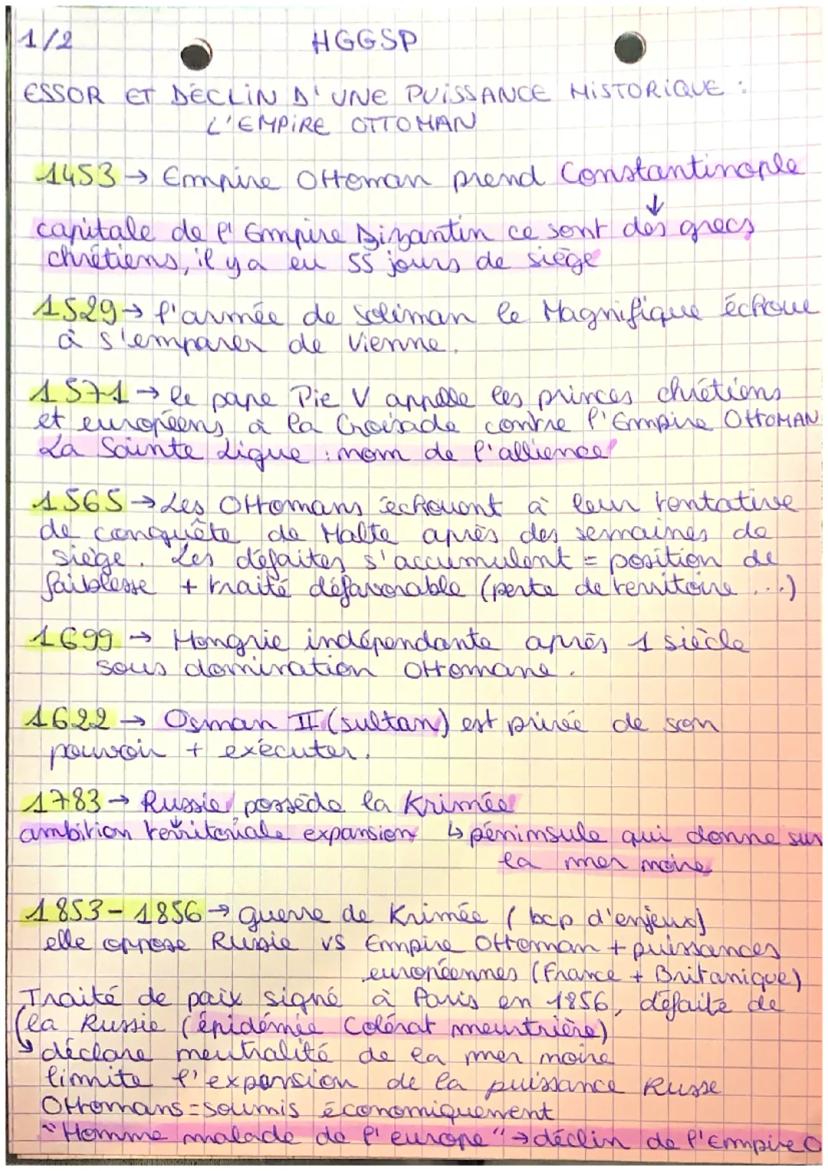 1/2
HGGSP
ESSOR ET DÉCLIN D'UNE PUISSANCE HISTORIQUE :
L'EMPIRE OTTOMAN
1453 → Empire Ottoman prend Constantinople
↓
capitale de l'Empire Bizantin ce sont des grecs
chrétiens, il y a eu 55 jours de siège
1529 → l'armée de soliman le Magnifique échoue
à s'emparer de Vienne.
1571 → le pape Pie V appelle les princes chrétiens
et européens à la Croisade contre l'Empire OTTOMAN
La Sainte Ligue : nom de l'allience
1565 → Les Ottomans échouent à leur tentative
de conquête de Malte après des semaines de
siège. Les défaites s'accumulent = position de
faiblesse + traité défavorable (perte de territoire ...)
1699 → Hongrie indépendante après 1 siècle
sous domination Ottomane.
1622 → Osman II (sultan) est privé de son
pouvoir + exécuter.
1783 → Russie possède la Krimée
ambition territoriale expansion ↳ péninsule qui donne sur
la mer noire
1853-1856 → guerre de Krimée (bcp d'enjeux)
elle oppose Russie vs Empire Ottoman + puissances
européennes (France + Britanique)
Traité de paix signé à Paris en 1856, défaite de
la Russie (épidémie Colérat meurtrière)
↳ déclare neutralité de la mer noire
limite l'expansion de la puissance Russe
Ottomans = soumis économiquement
"Homme malade de l'europe" → déclin de l'Empire O